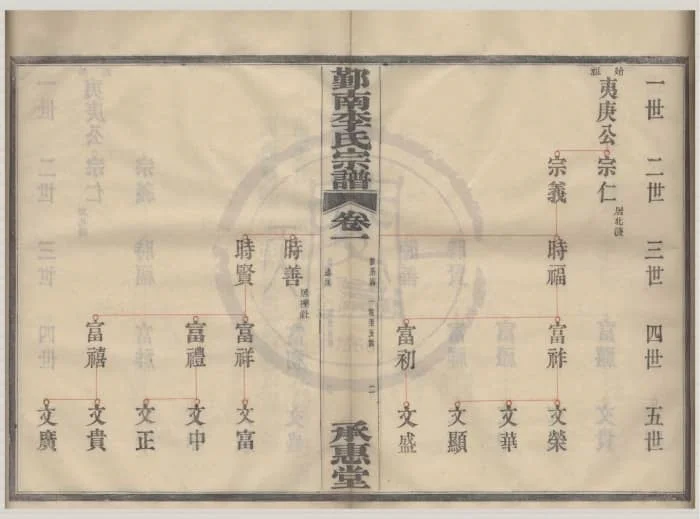 一世 二世 三世 四世 五世
始祖
夷庚公
宗仁
居北
宗義 時福 富祚 文榮
文華
文顯
富利 文盛
鄞南李氏宗譜 卷一
一世至五世 二
承惠堂
時善
居
時賢 富祥 文富
富禮 文中
文正
富禧 文貴
文廣